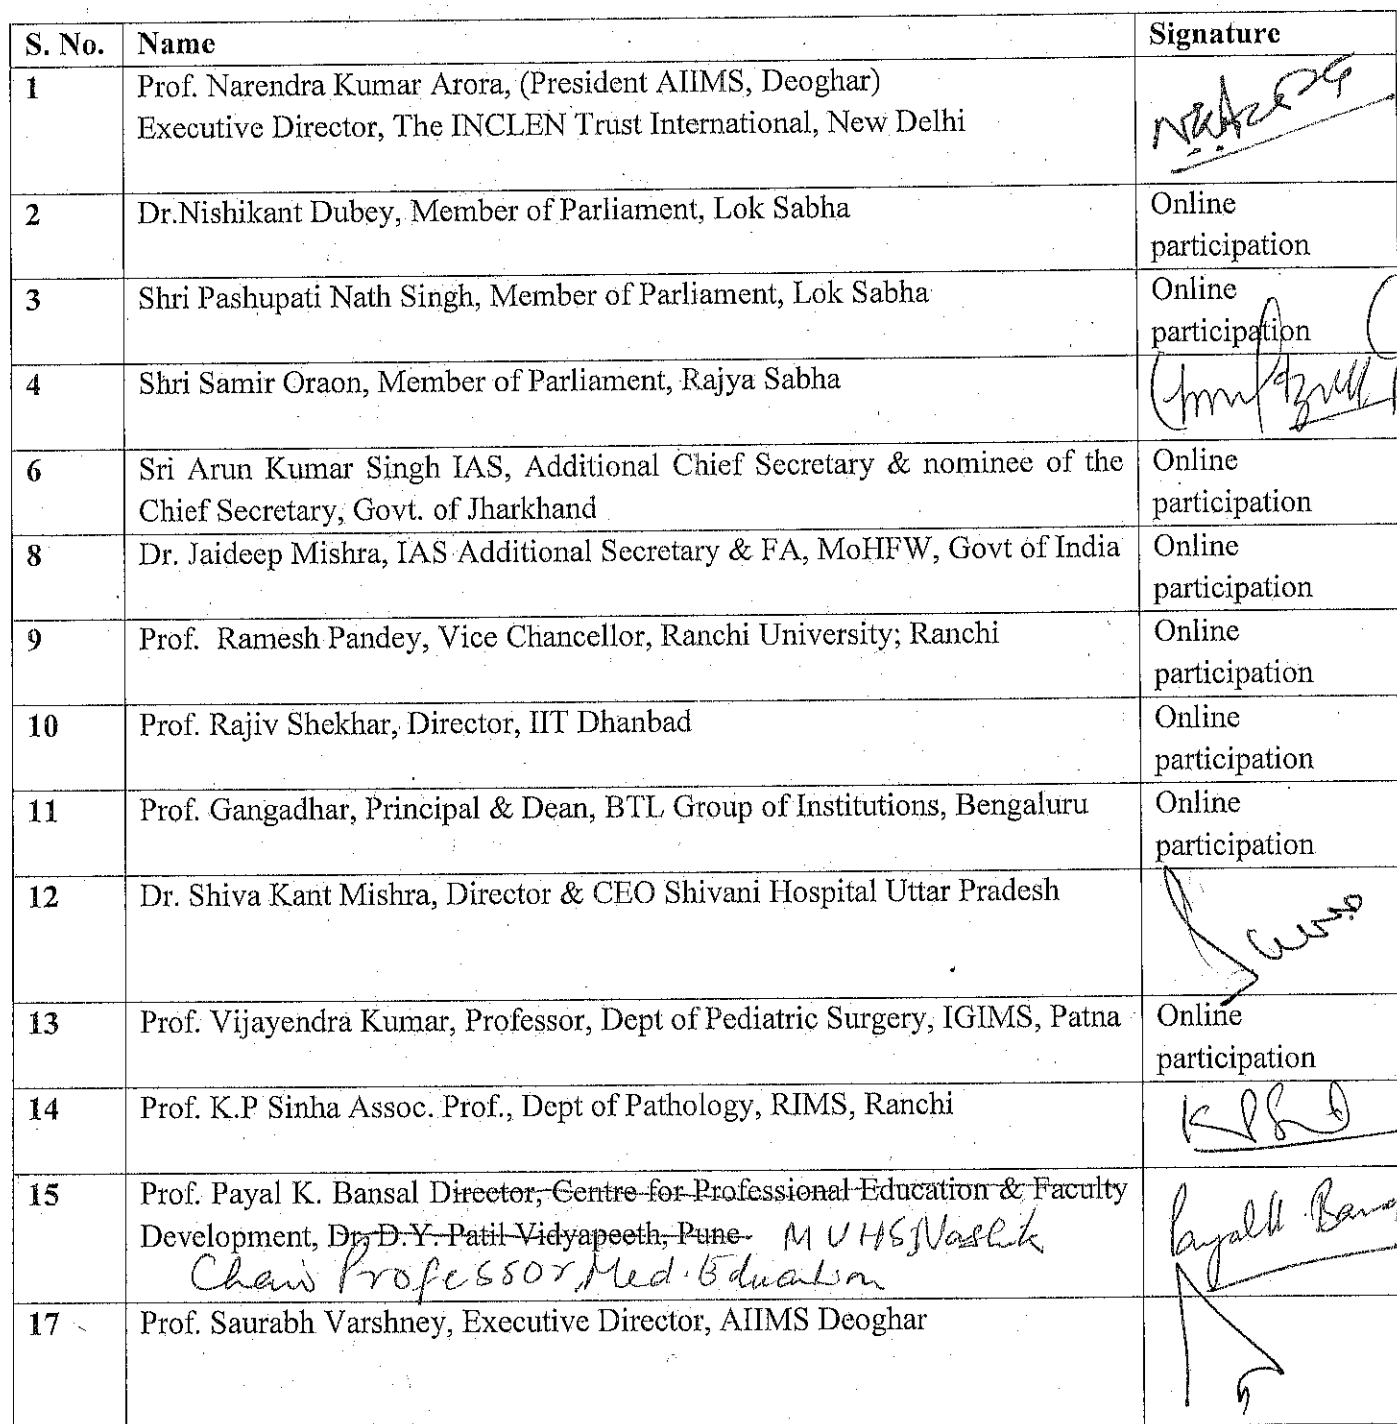 S. No. Name Signature
1 Prof. Narendra Kumar Arora, (President AIIMS, Deoghar)
Executive Director, The INCLEN Trust International, New Delhi
2 Dr.Nishikant Dubey, Member of Parliament, Lok Sabha Online
participation
3 Shri Pashupati Nath Singh, Member of Parliament, Lok Sabha Online
participation
4 Shri Samir Oraon, Member of Parliament, Rajya Sabha
6 Sri Arun Kumar Singh IAS, Additional Chief Secretary & nominee of the Online
Chief Secretary, Govt. of Jharkhand participation
8 Dr. Jaideep Mishra, IAS Additional Secretary & FA, MoHFW, Govt of India Online
participation
9 Prof. Ramesh Pandey, Vice Chancellor, Ranchi University; Ranchi Online
participation
10 Prof. Rajiv Shekhar, Director, IIT Dhanbad Online
participation
11 Prof. Gangadhar, Principal & Dean, BTL Group of Institutions, Bengaluru Online
participation
12 Dr. Shiva Kant Mishra, Director & CEO Shivani Hospital Uttar Pradesh
13 Prof. Vijayendra Kumar, Professor, Dept of Pediatric Surgery, IGIMS, Patna Online
participation
14 Prof. K.P Sinha Assoc. Prof., Dept of Pathology, RIMS, Ranchi
15 Prof. Payal K. Bansal Director, Centre for Professional Education & Faculty
Development, Dr. D.Y. Patil Vidyapeeth, Pune MUHS, Nashik
Chair Professor, Med. Education
17 Prof. Saurabh Varshney, Executive Director, AIIMS Deoghar